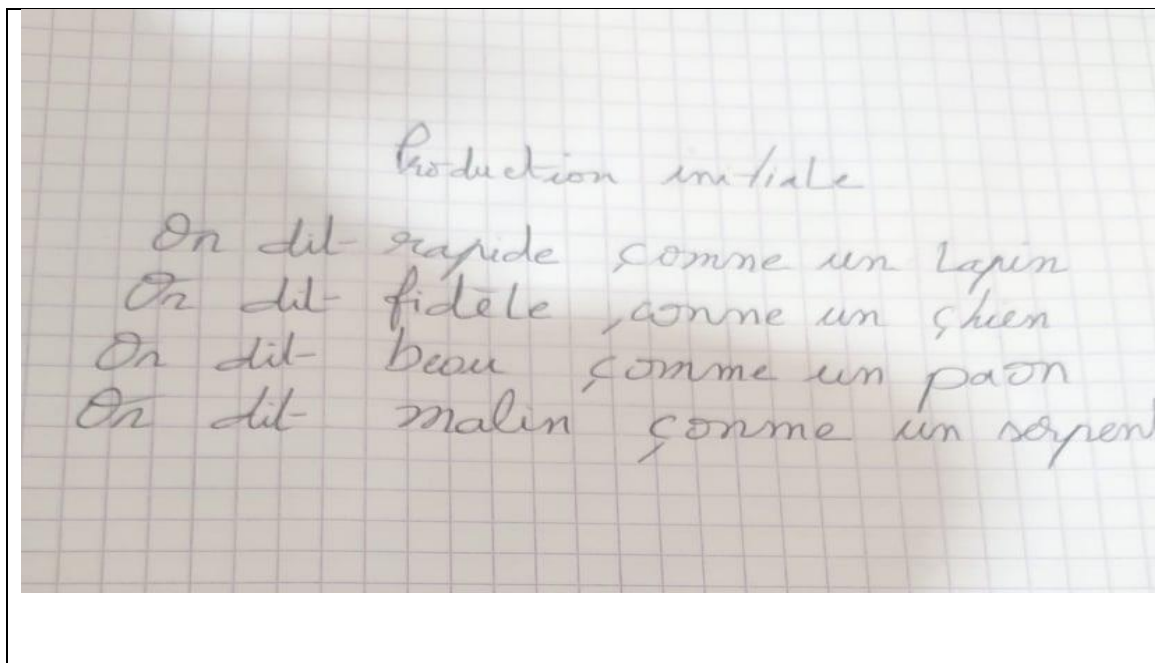 Production initiale
On dit rapide çomne un Lapin
On dit fidèle ,comne un çhien
On dit beau çomme un paon
On dit malin çonme un serpent